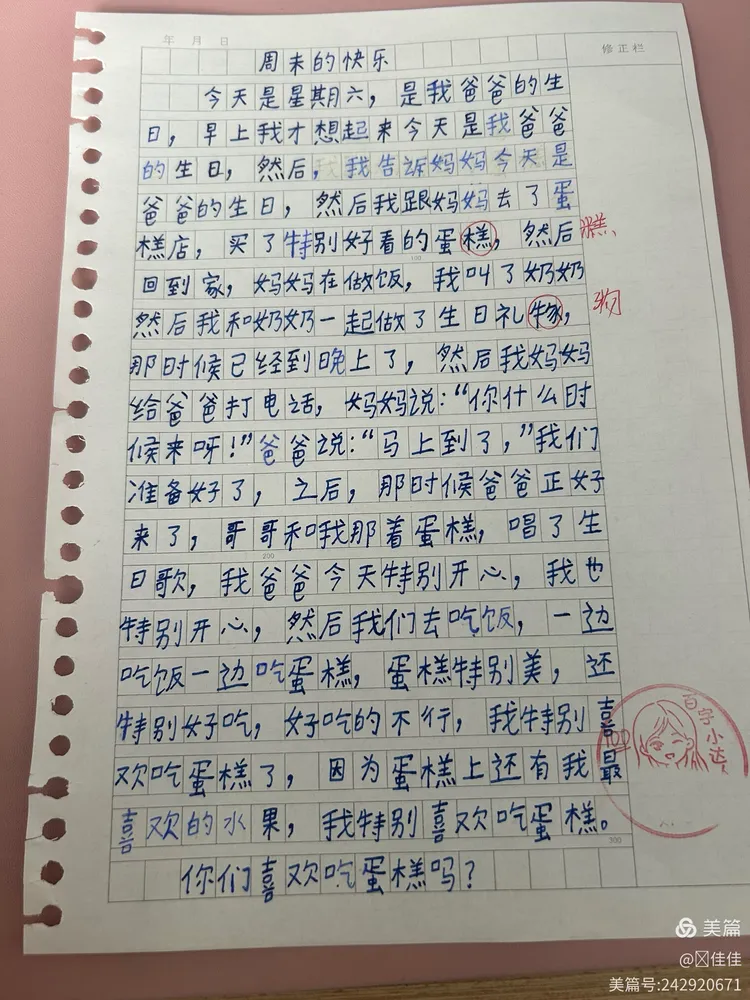 年 月 日
修正栏
周末的快乐
今天是星期六，是我爸爸的生
日，早上我才想起来今天是我爸爸
的生日，然后，我告诉妈妈今天是
爸爸的生日，然后我跟妈妈去了蛋
糕店，买了特别好看的蛋糕，然后
糕
回到家，妈妈在做饭，我叫了奶奶
然后我和奶奶一起做了生日礼，
物
那时候已经到晚上了，然后我妈妈
给爸爸打电话，妈妈说：“你什么时
候来呀！”爸爸说：“马上到了，”我们
准备好了，之后，那时候爸爸正好
来了，哥哥和我那着蛋糕，唱了生
200
日歌，我爸爸今天特别开心，我也
特别开心，然后我们去吃饭，一边
吃饭一边吃蛋糕，蛋糕特别美，还
特别好吃，好吃的不行，我特别喜
欢吃蛋糕了，因为蛋糕上还有我最
喜欢的水果，我特别喜欢吃蛋糕。
300
你们喜欢吃蛋糕吗？
百字小达人
美篇
@佳佳
美篇号:242920671